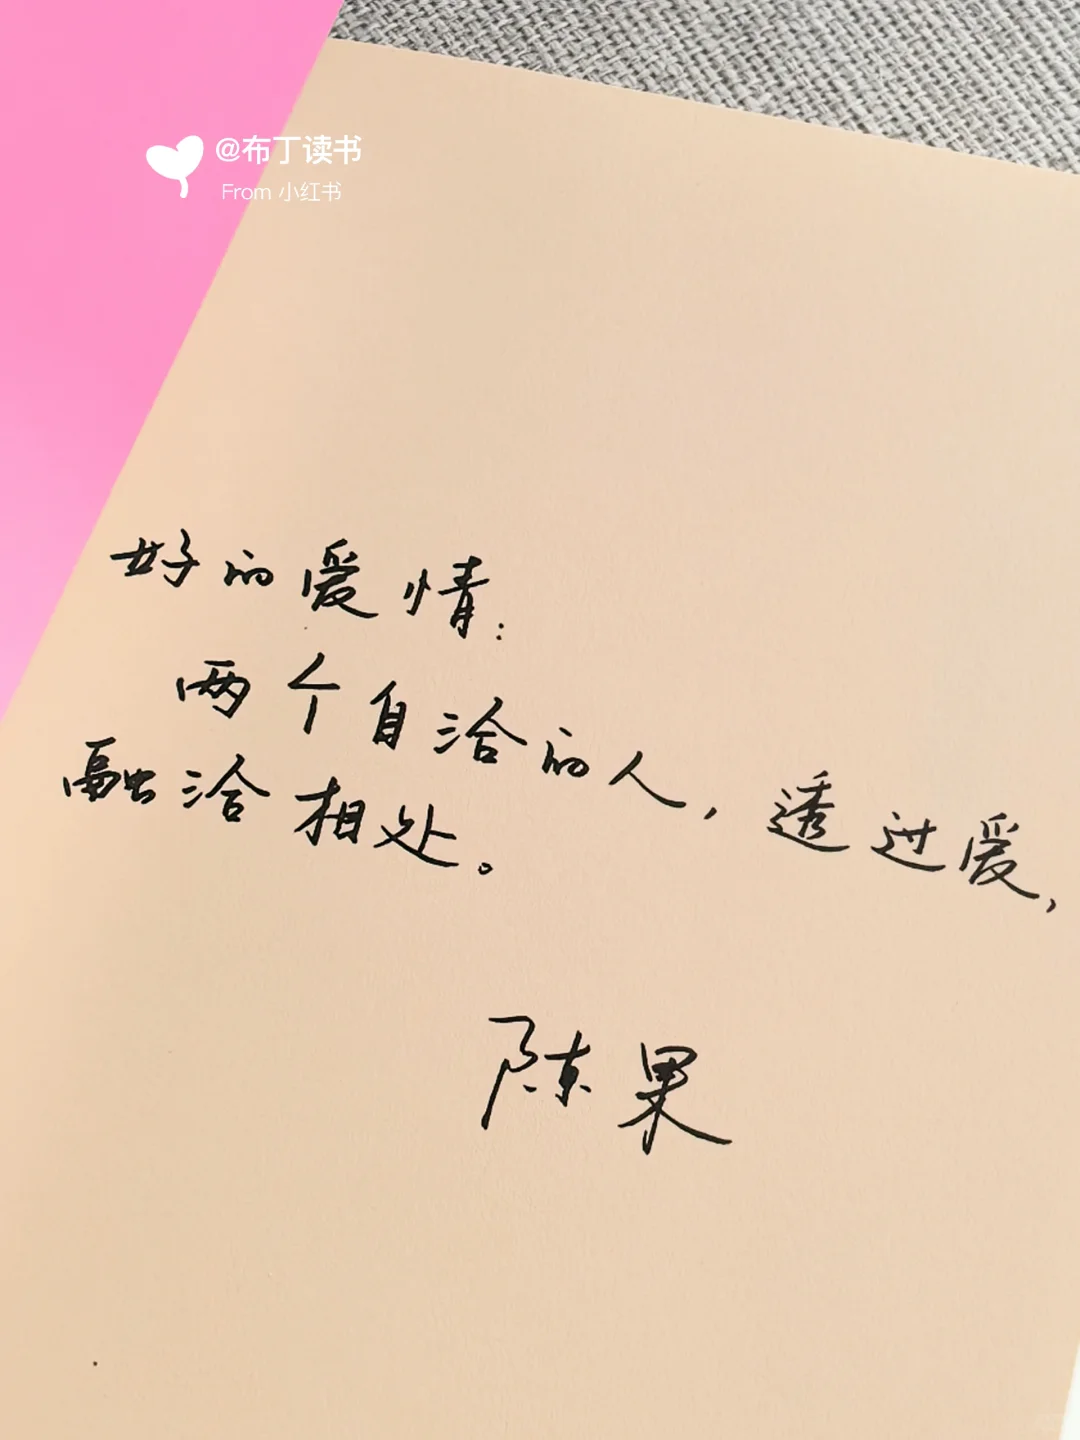 @布丁读书
From 小红书
好的爱情：
两个自洽的人，透过爱，
融洽相处。
陈果